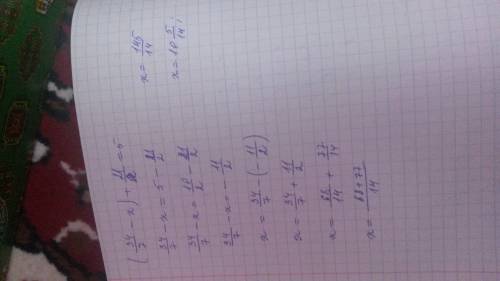 (34/7 - x) + 21/2 = 5
34/7 - x = 5 - 21/2
34/7 - x = 10/2 - 21/2
34/7 - x = - 11/2
x = 34/7 - (- 11/2)
x = 34/7 + 11/2
x = 68/14 + 77/14
x = (68+77)/14
x = 145/14
x = 10 5/14;